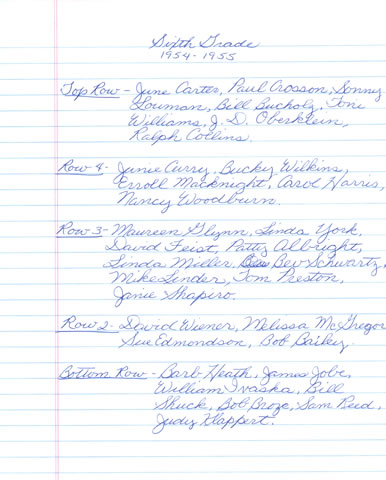 Sixth Grade
1954-1955
Top Row - June Carter, Paul Crosson, Sonny
Louman, Bill Bucholz, Toni
Williams, J. D. Oberklein,
Ralph Collins.
Row 4 - Janie Curry, Bucky Wilkins,
Erroll Macknight, Carol Harris,
Nancy Woodburn.
Row 3 - Maureen Glynn, Linda York,
David Feist, Patty Albright,
Linda Miller, Bev Schwartz,
Mike Linder, Tom Preston,
Janie Shapiro.
Row 2 - David Wiener, Melissa McGregor
Sue Edmondson, Bob Bailey.
Bottom Row - Barb Heath, James Jobe,
William Ivaska, Bill
Shuck, Bob Broze, Sam Reed,
Judy Klappert.